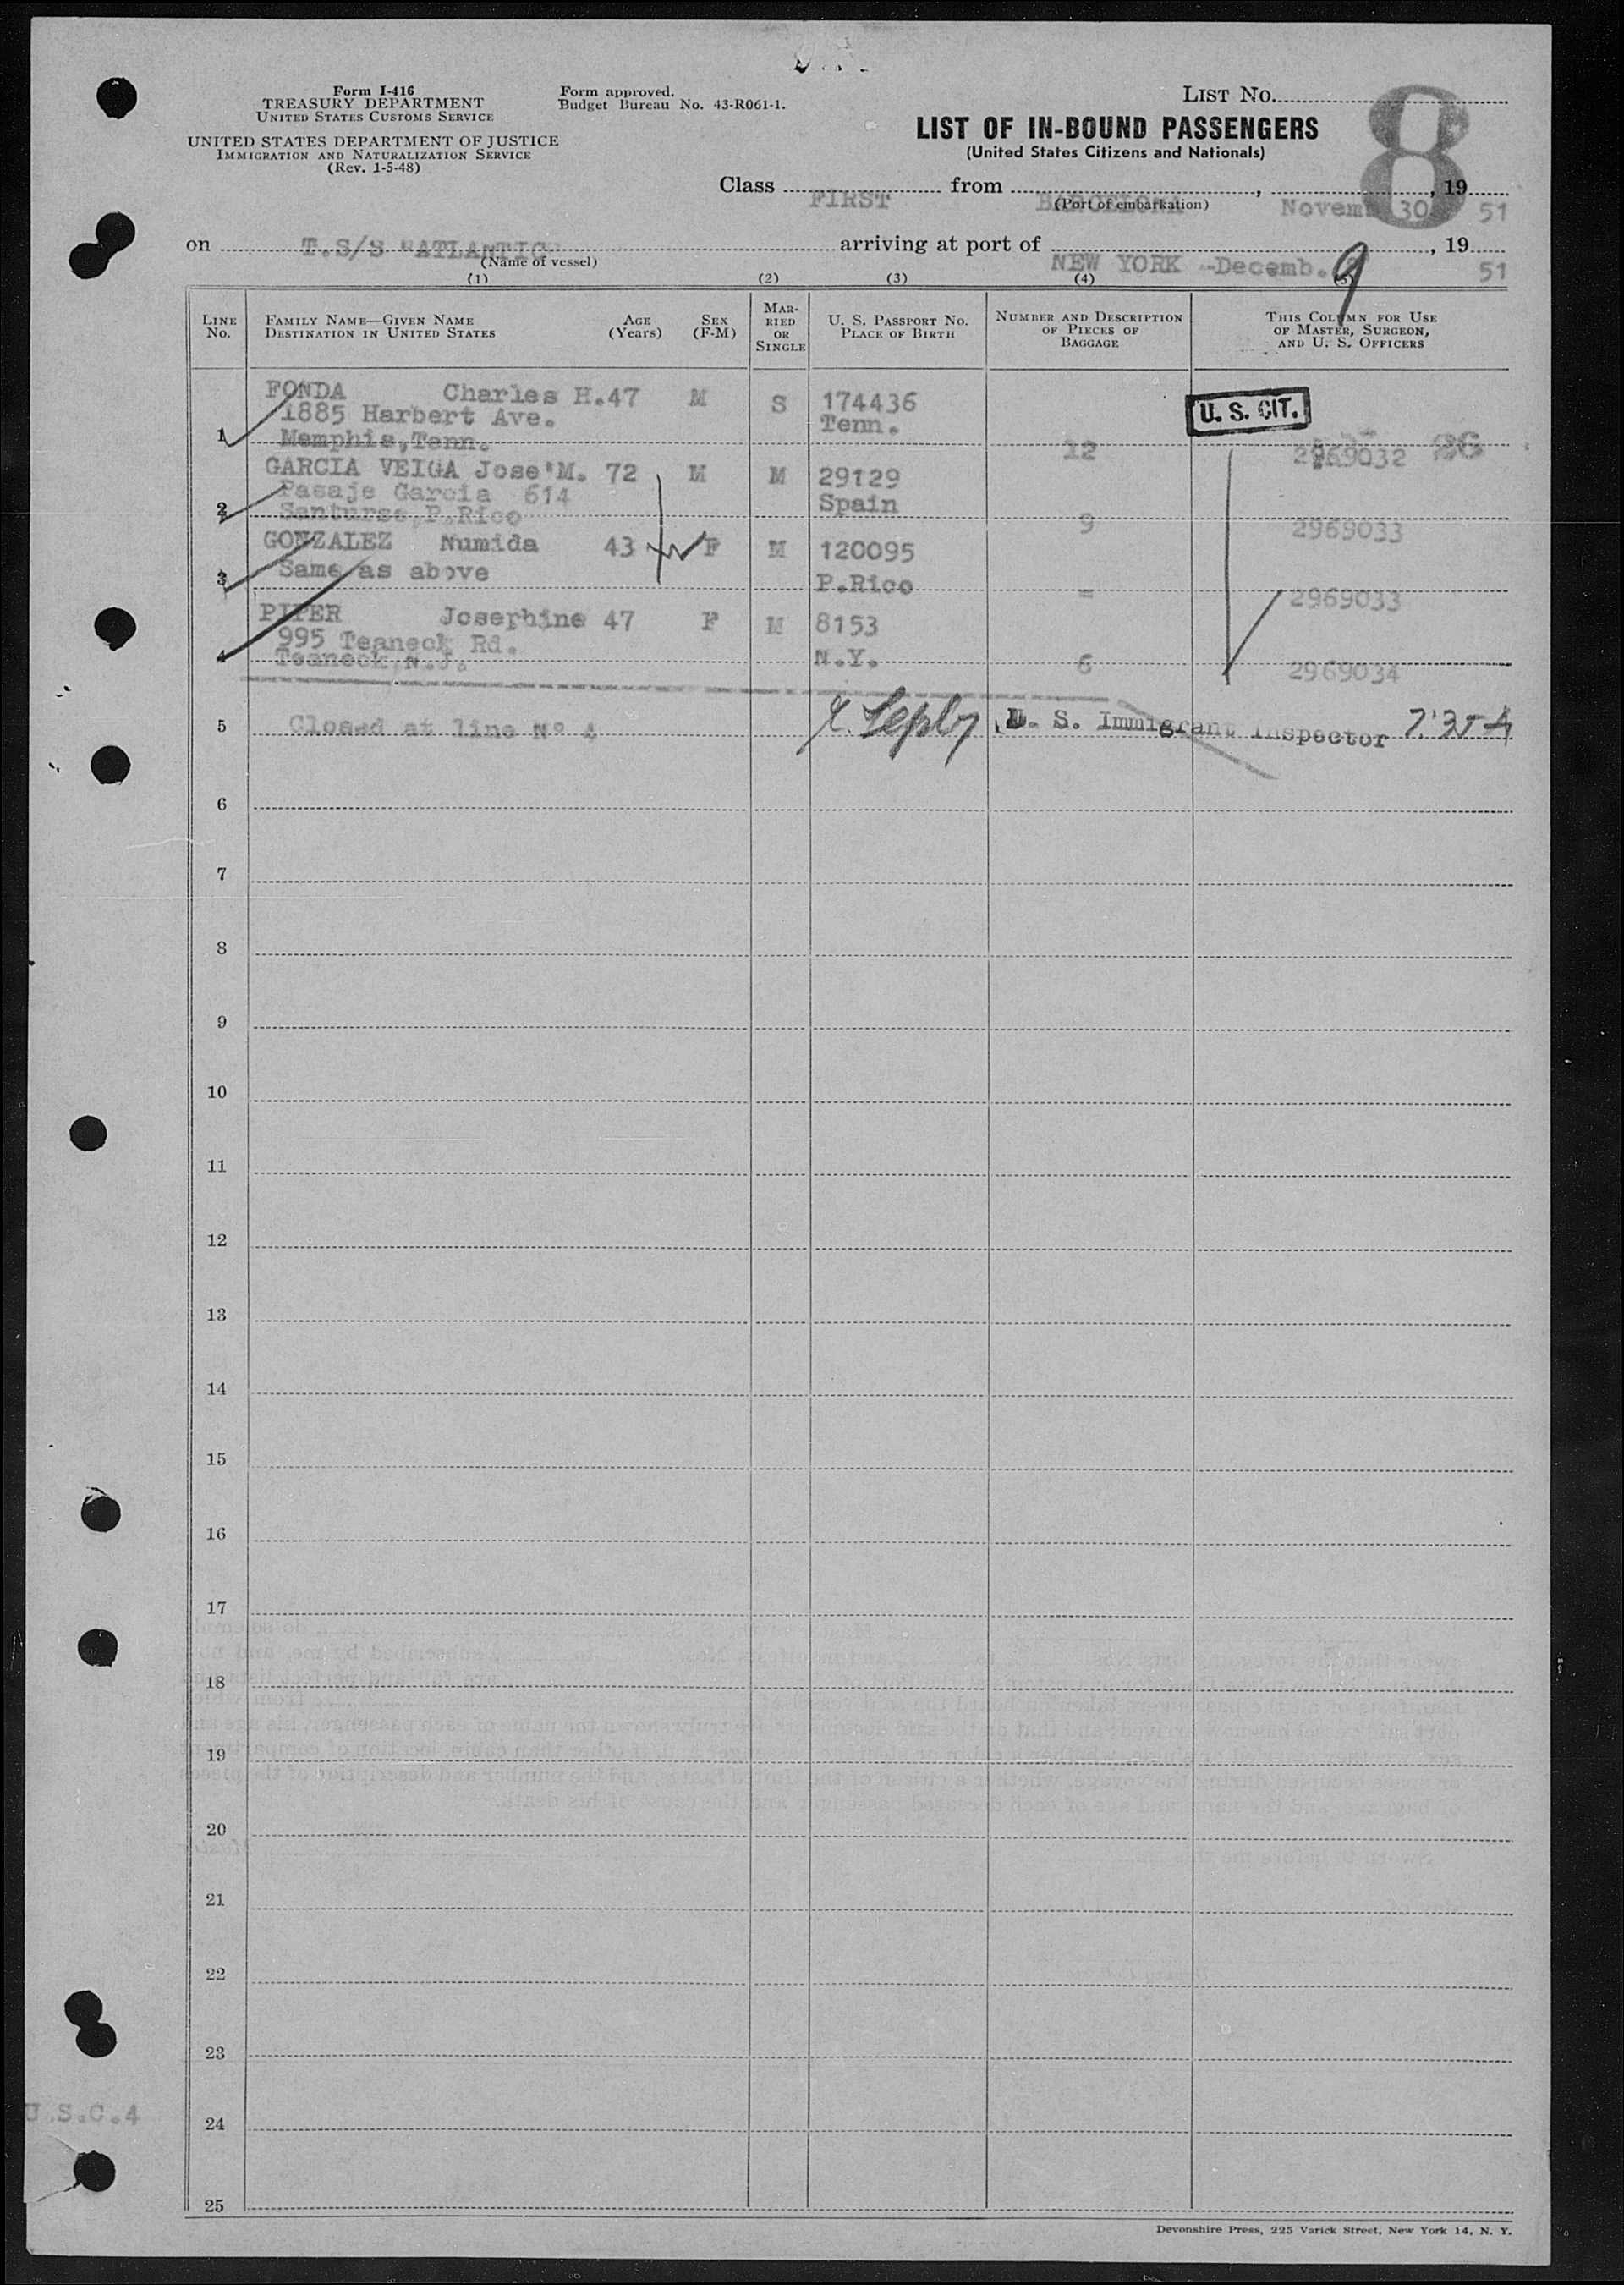 Form I-416
TREASURY DEPARTMENT
UNITED STATES CUSTOMS SERVICE
UNITED STATES DEPARTMENT OF JUSTICE
IMMIGRATION AND NATURALIZATION SERVICE
(Rev. 1-5-48)
Form approved.
Budget Bureau No. 43-R061-1.
LIST No. 8
LIST OF IN-BOUND PASSENGERS
(United States Citizens and Nationals)
Class FIRST from BARCELONA, Novemb 30, 19 51
(Port of embarkation)
on T.S/S "ATLANTIC" arriving at port of NEW YORK -Decemb. 9, 19 51
(Name of vessel)
(1) (2) (3) (4) (5)
LINE No. FAMILY NAME—GIVEN NAME DESTINATION IN UNITED STATES AGE (Years) SEX (F-M) MARRIED OR SINGLE U. S. PASSPORT No. PLACE OF BIRTH NUMBER AND DESCRIPTION OF PIECES OF BAGGAGE THIS COLUMN FOR USE OF MASTER, SURGEON, AND U. S. OFFICERS
FONDA Charles H. 47 M S 174436 U. S. CIT.
1885 Harbert Ave. Tenn.
1 Memphis, Tenn. 12 2969032 26
GARCIA VEIGA Jose M. 72 M M 29129
Pasaje Garcia 614 Spain
2 Santurse, P.Rico 9 2969033
GONZALEZ Numida 43 F M 120095
3 Same as above P.Rico = 2969033
PIPER Josephine 47 F M 8153
995 Teaneck Rd.
4 Teaneck, N.J. N.Y. 6 2969034
5 Closed at line Nº 4 U. S. Immigrant Inspector
6
7
8
9
10
11
12
13
14
15
16
17
18
19
20
21
22
23
U.S.C.4
24
25
Devonshire Press, 225 Varick Street, New York 14, N. Y.